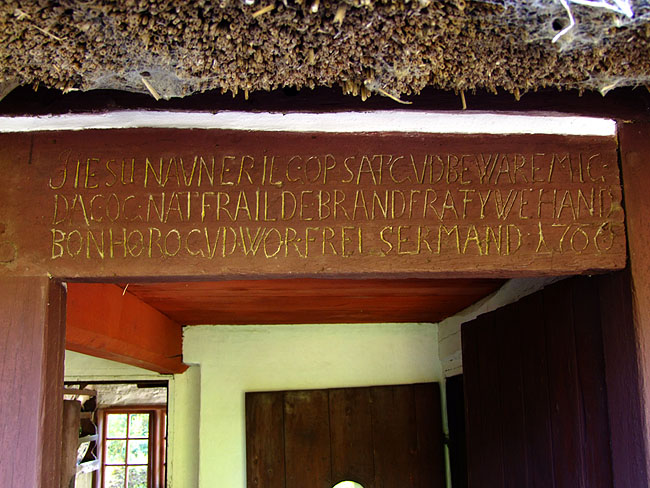 JIESU NAVN ER IL GOPSAT GUD BEWARE MIG:
DAG OG NAT FRA ILDEBRAND FRA FYWE HAND
BON HØR O GUD WOR FRELSERMAND: 1766